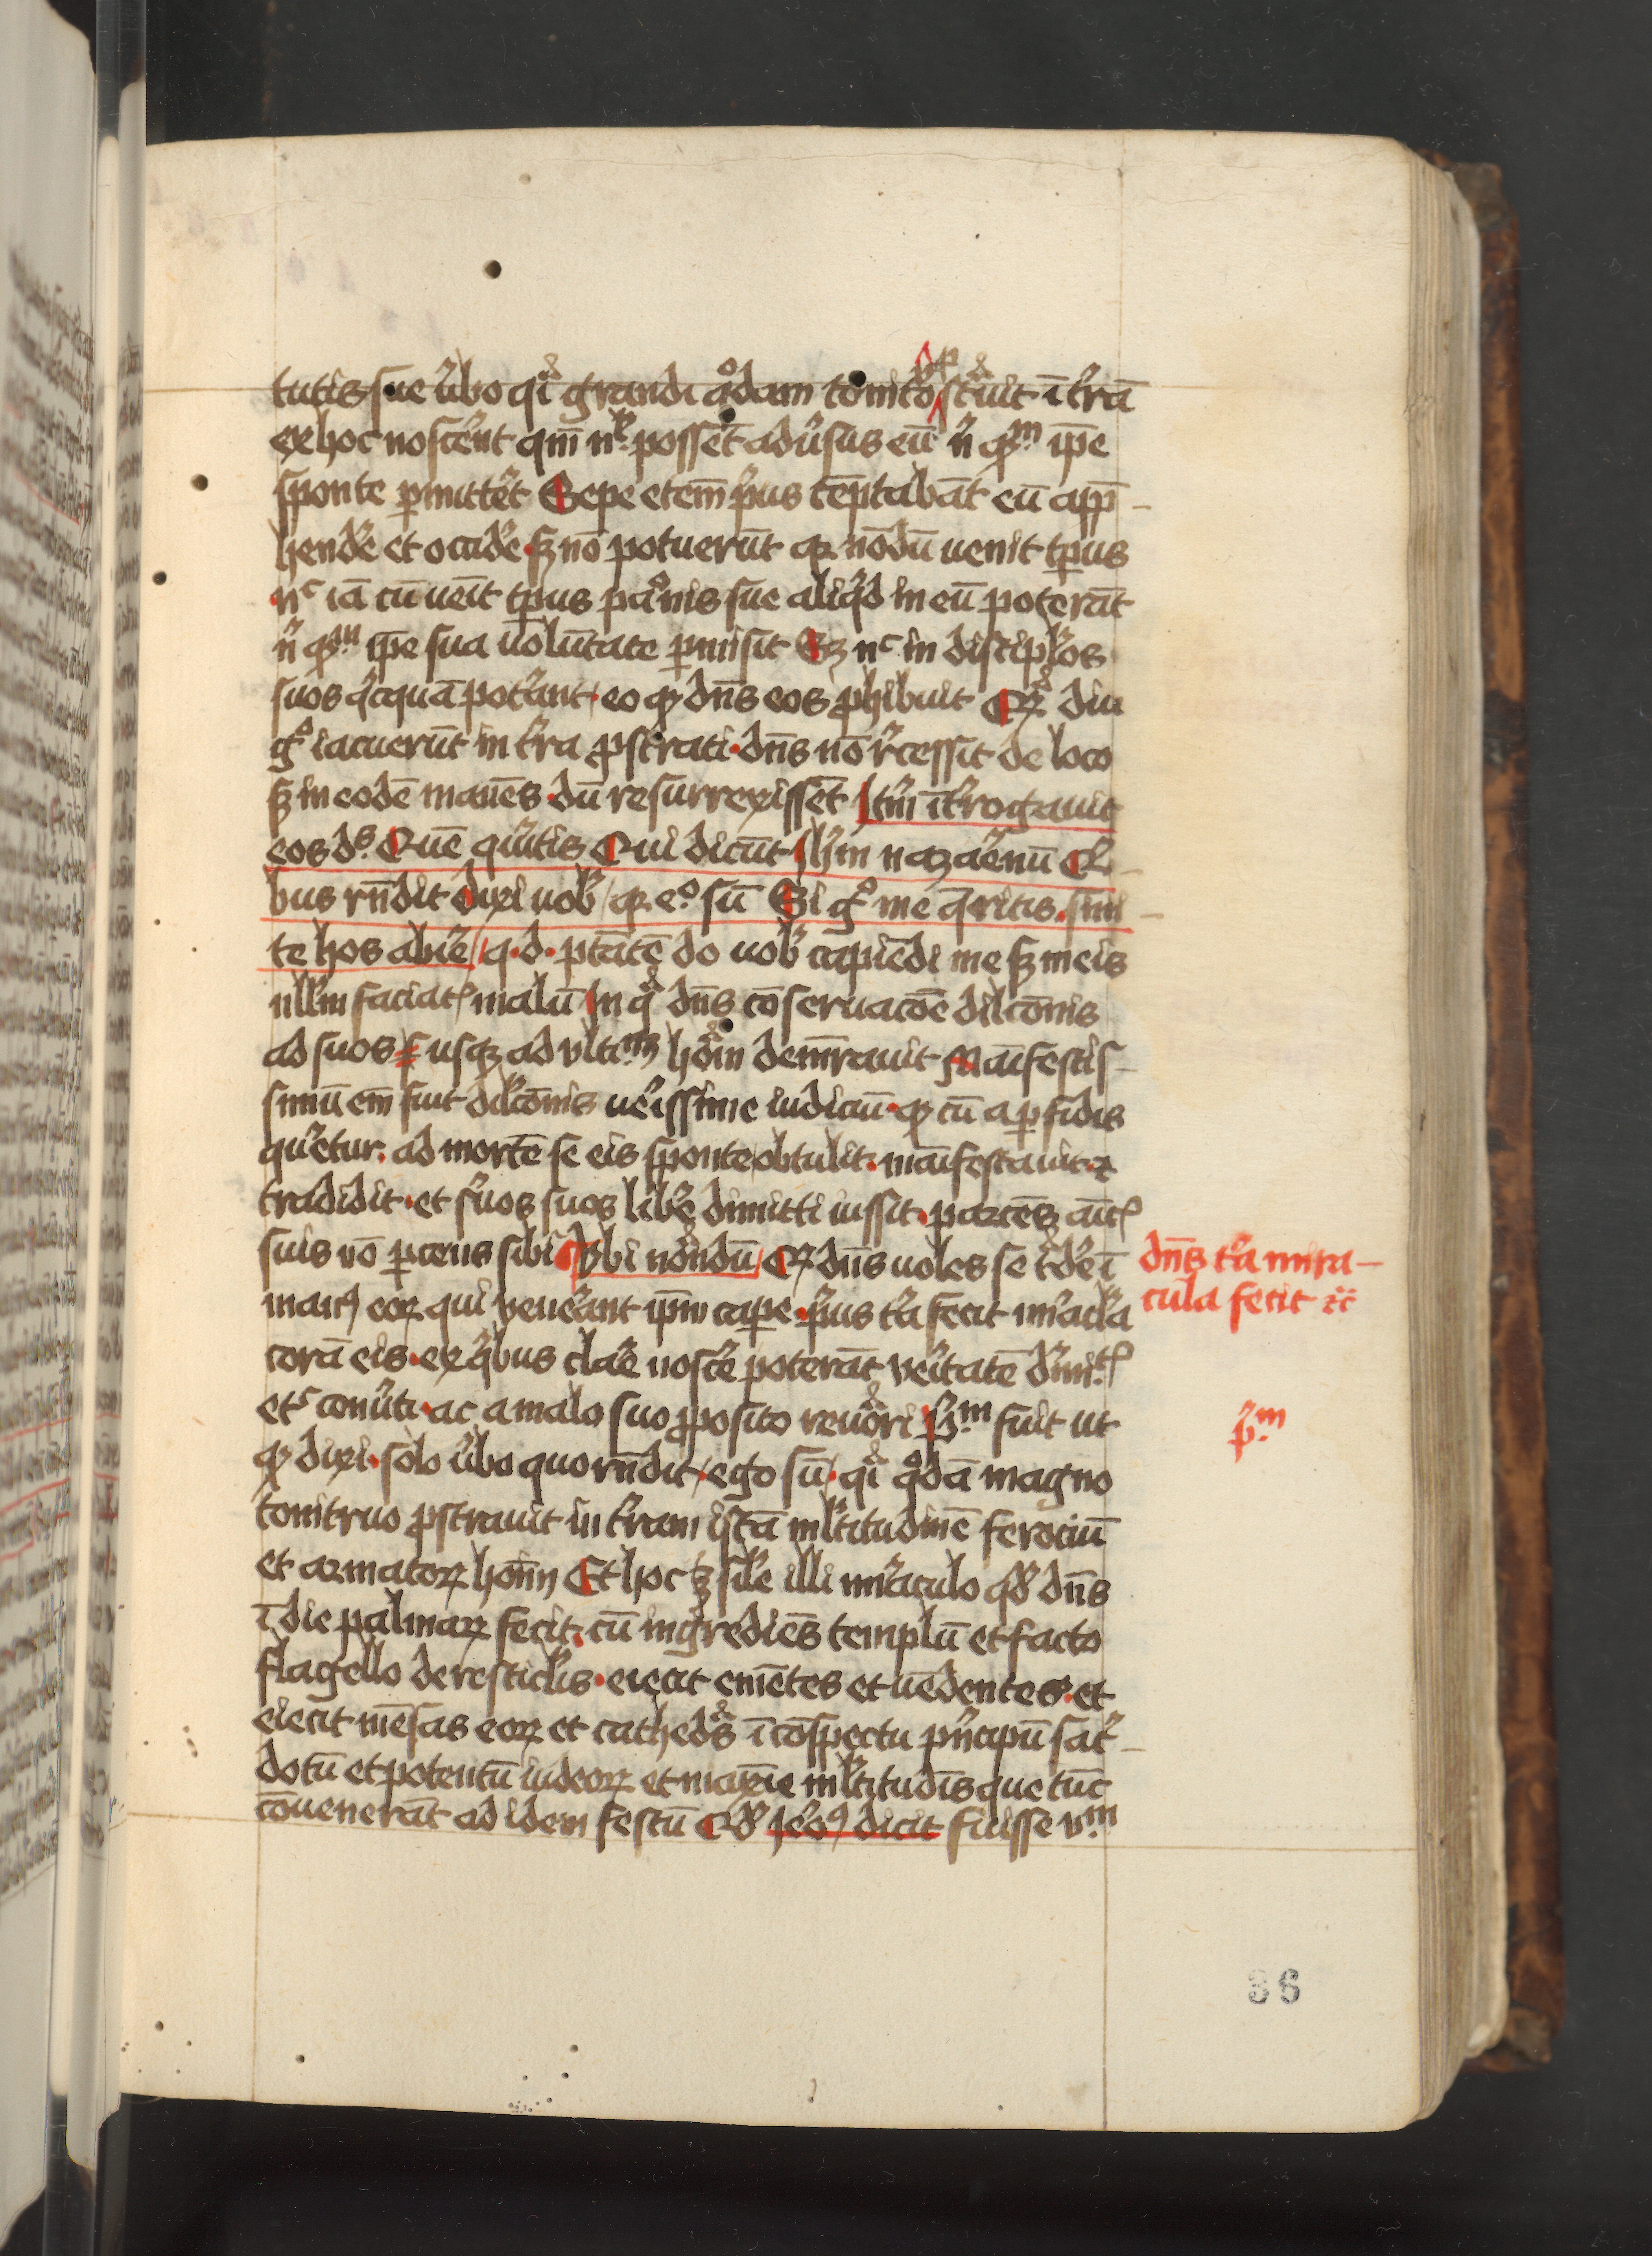 tutis sue v̾bo qi̾ grandi q°dam tonit°o p̲st̾uit ī t̾rā
ex hoc nosc̾ent qm̄ n̾ possēt adu̾sus eū n̾ qm̄ ip̄e
sponte p̲mitt̾et Sepe etem̄ p̾us tēptabāt eū app̄
hend̾e et occid̾e sꝫ nō potuerūt qꝛ nōdū uenit tp̲us
nᶜ iā cū ueīt tp̲us pa°nis sue aliq̾d in eū poterāt
n̾ qm̄ ip̄e sua uolūtate p̲misit Sꝫ nᶜ in discip̾los
suos q̾cquā pot̾ant eo ꝙ dn̄s eos ꝓhibuit Qꝛ diu
g° iacuerūt in t̾ra ꝓstrati dn̄s nō r̾cessit de loco
sꝫ in eodē manēs dū resurrexissēt It̾m īt̾rogauit
eos dˢ Quē q̾ritis Qui dicūt Ih̄m nazaēnū Q̾
bus rn̄dit dixi uob̾ qꝛ e° sū Si g° me q̄ritis sini
te hos abir̾e q.d. ptātē do uob̾ capiēdi me sꝫ meis
nll̾m faciatꝭ malū In q° dn̄s cōseruacōe dilcōnis
ad suos usqꝫ ad vltiᵐ hōm dem̄rauit Maīfestis
simū em̄ fuit dilcōnis ueissime iudiciū ꝙ cū a p̲fidis
qu̾etur ad mortē se eis sponte obtulit maīfestauit ⁊
tradidit et s̾uos suos lib̾e dimitti iussit parcēs aūtꝭ
suis nō p̲cens sibi Vbi nōndū Qꝛ dn̄s uolēs se t̾d̾e ī
manꝰ eoꝝ qui uen̾ant ip̄m cap̲e p̾us t̾a fecit mi̾acl̾a
corā eis ex q̾bus clar̾e nosc̾e poterāt u̾itatē diuitꝭ
etᶜ conu̾ti ac a malo suo ꝓposito reuo̾ri P̾ᵐ fuit ut
ꝙ dixi solo v̾bo quo rn̄dit ego sū qi̾ q°dā magno
tonitruo ꝓstrauit in t̾ram istā ml̾titudinē ferociū
et armatoꝝ hoīm Et hoc ꝫ sil̾e illi mi̾aculo qd̾ dn̄s
ī die palmaꝝ fecit cū ingredies templū et facto
flagello de resticl̾is eiecit emētes et uēdentes et
eiecit mēsas eoꝝ et cathed̾s ī cōspectu p̾ncipū sac̾
dotū et potentū iudeoꝝ et maxīe ml̾titudīs que tūc
cōuenerāt ad idem festū Qd̾ Ie̾oꝰ dicit fuisse vᵐ
dn̄s t̾a mira-
cula fecit ⁊c̄
p̾ᵐ
36